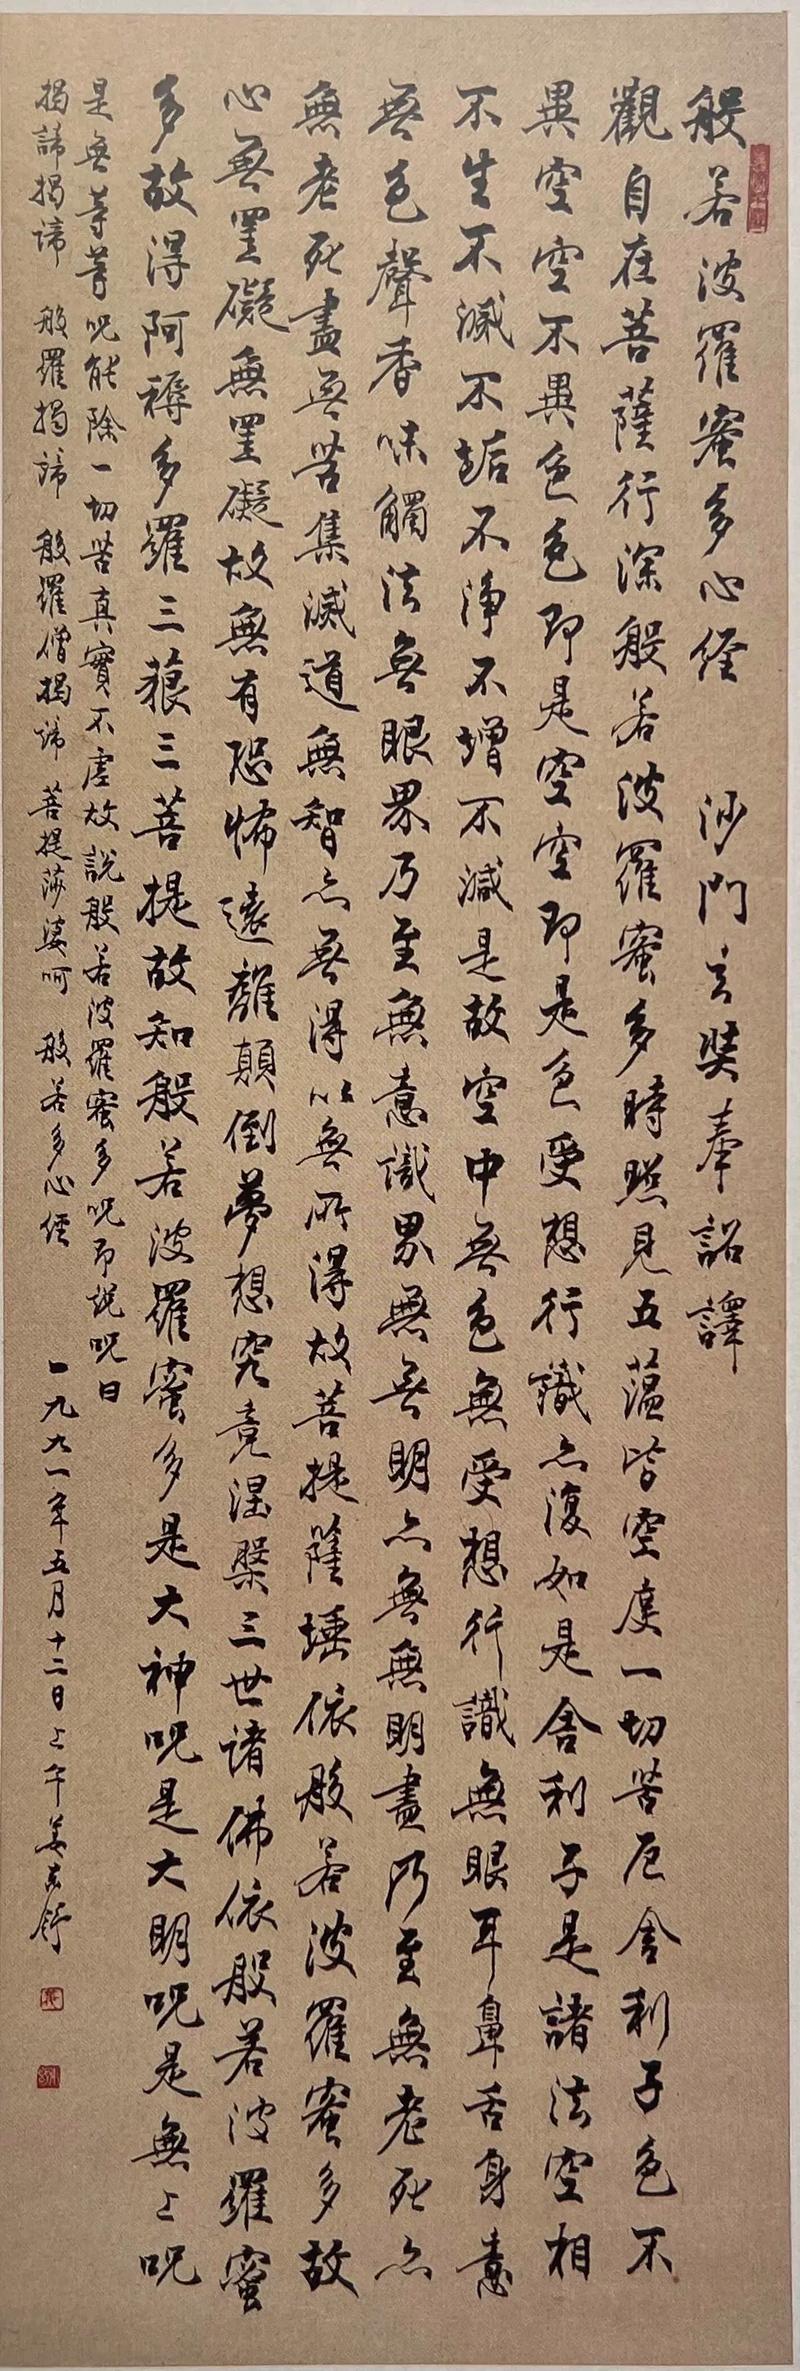 般若波羅蜜多心經 沙門玄奘奉詔譯
觀自在菩薩行深般若波羅蜜多時照見五蘊皆空度一切苦厄舍利子色不
異空空不異色色即是空空即是色受想行識亦復如是舍利子是諸法空相
不生不滅不垢不淨不增不減是故空中無色無受想行識無眼耳鼻舌身意
無色聲香味觸法無眼界乃至無意識界無無明亦無無明盡乃至無老死亦
無老死盡無苦集滅道無智亦無得以無所得故菩提薩埵依般若波羅蜜多故
心無罣礙無罣礙故無有恐怖遠離顛倒夢想究竟涅槃三世諸佛依般若波羅蜜
多故得阿耨多羅三藐三菩提故知般若波羅蜜多是大神呪是大明呪是無上呪
是無等等呪能除一切苦真實不虛故說般若波羅蜜多呪即說呪曰
揭諦揭諦 般羅揭諦 般羅僧揭諦 菩提莎婆呵 般若多心經 一九九一年五月十二日上午姜東舒